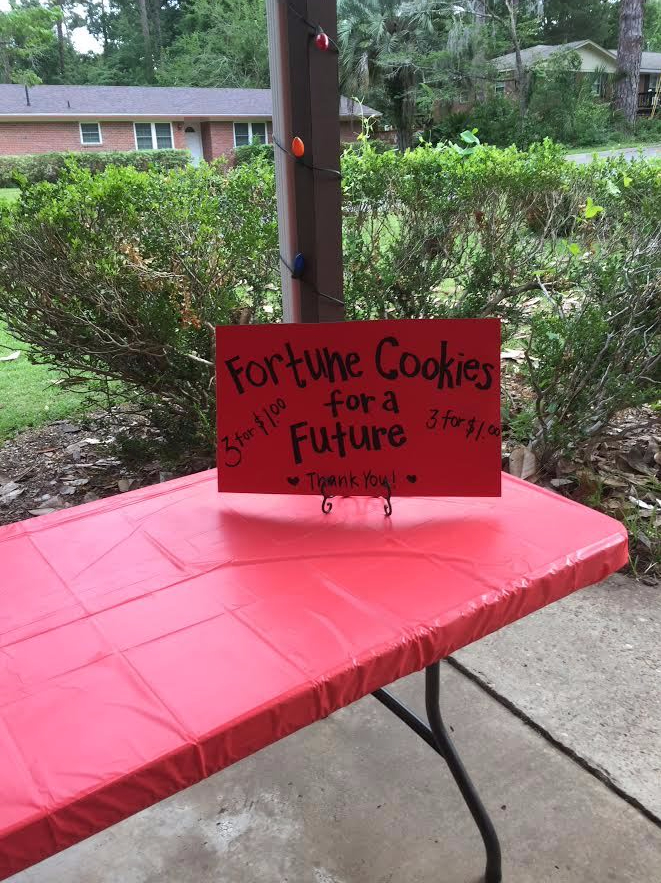 Fortune Cookies
for a
3 for $1.00
3 for $1.00
Future
♥ Thank You! ♥